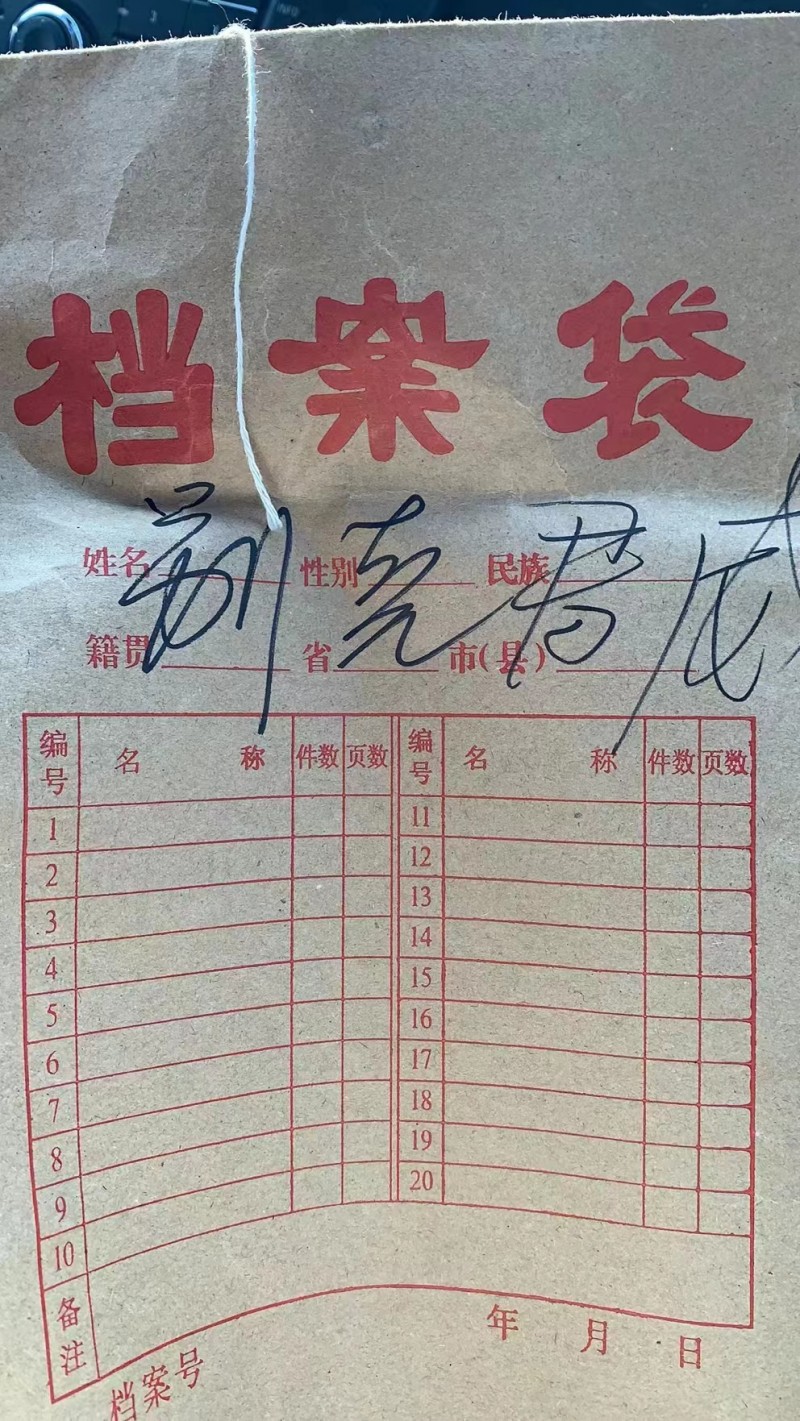 档案袋
姓名 性别 民族
籍贯 省 市(县)
编号 名称 件数 页数 编号 名称 件数 页数
1 11
2 12
3 13
4 14
5 15
6 16
7 17
8 18
9 19
10 20
备注
年 月 日
档案号